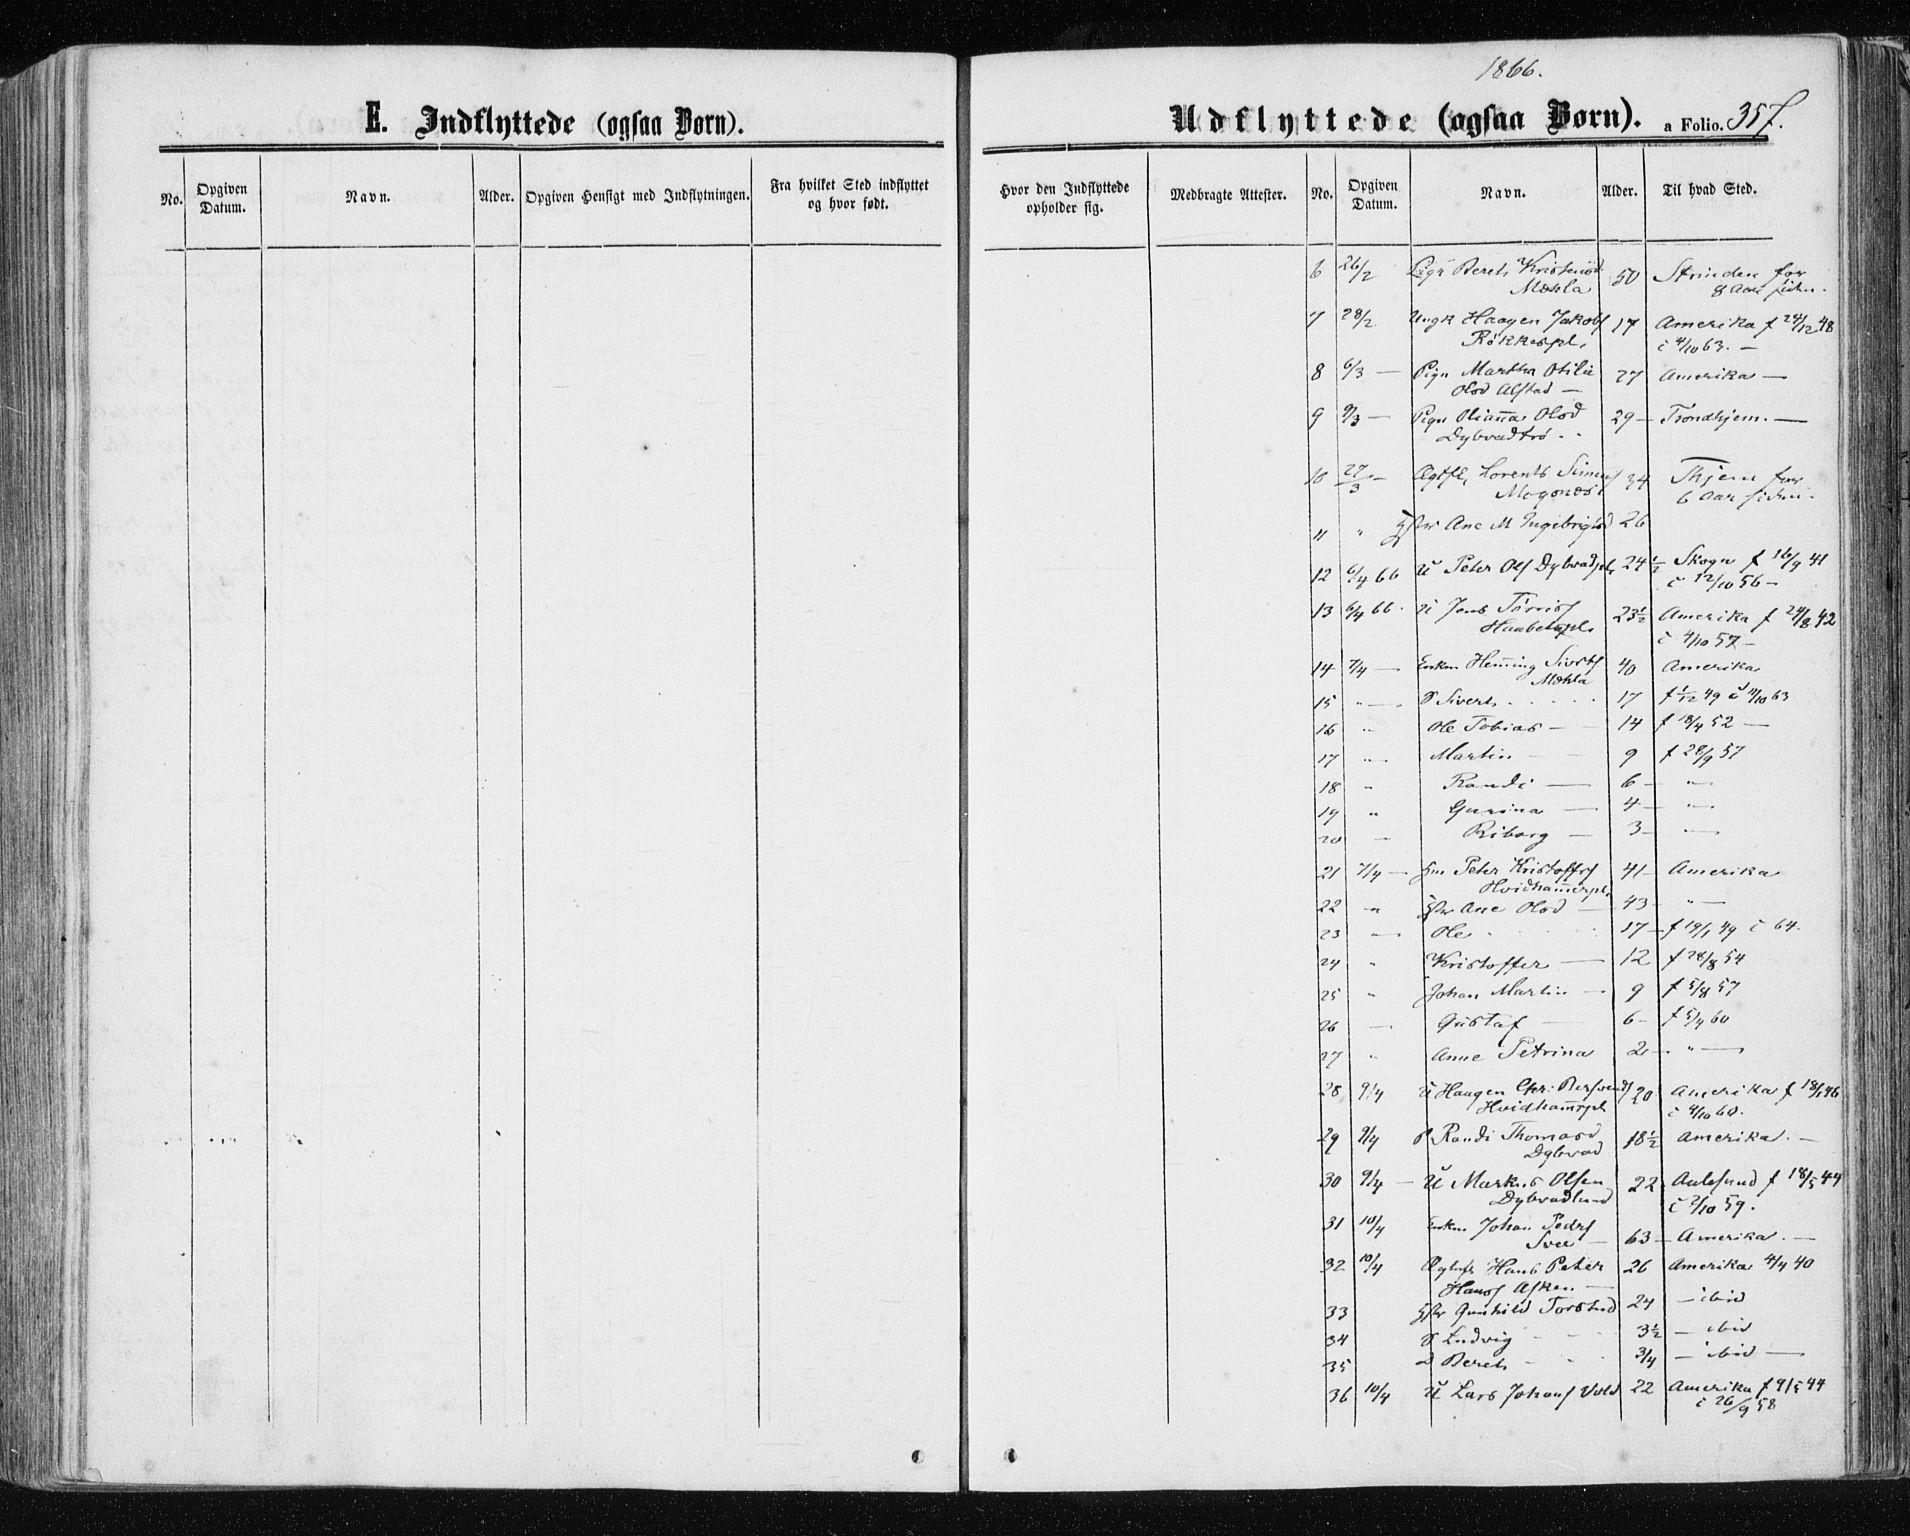 E. Indflyttede (ogsaa Børn).
No.
Opgiven Datum.
Navn.
Alder.
Opgiven Hensigt med Indflytningen.
Fra hvilket Sted indflyttet og hvor født.
1866.
Udflyttede (ogsaa Børn). a Folio. 357.
Hvor den Indflyttede opholder sig.
Medbragte Attester.
No.
Opgiven Datum.
Navn.
Alder.
Til hvad Sted.
6 26/2 Pige Beret Kristensd 50 Strinden for
Mæhla 8 Aar siden.
7 28/2 Ungk Haagen Jakobs 17 Amerika f 24/12 48
Røkkespl. c 4/10 63. —
8 6/3 — Pige Martha Otilie 27 Amerika —
Olsd Alstad —
9 9/3 — Pige Olianna Olsd 29 — Trondhjem. —
Dybvadtrø
10 27/3 — Ægtfl, Lorents Simons 34 Thjem for
6 Aar siden.
11 " Hstr Ane M Ingebrigtsd 26
12 6/4 66 U Peter Ols Dybvadpl, 24 1/2 Skogn f 16/9 41
c 12/10 56 —
13 6/4 66. U Jens 23 1/2 Amerika f 24/8 42
c 4/10 57 —
14 7/4 — Enkm Henning Siverts 40 Amerika
Mæhla
15 " — S Sivert 17 f 1/12 49 c 4/10 63
16 " Ole Tobias — 14 f 18/4 52 —
17 " Martin — 9 f 28/9 57
18 " Randi — 6 — "
19 " Gurina — 4 — "
20 — Riborg — 3 — "
21 7/4 — Hm Peter Kristoffrs 41 — Amerika
Hvidhammerpl
22 " Hstr Ane Olsd — 43 — " —
23 — Ole 17 — f 19/1 49 c 64.
24 " Kristoffer — 12 f 28/8 54
25 " Johan Martin — 9 f 5/8 57
26 — Gustaf — 6 — f 5/4 60
27 " Anne Petrina 2 — " —
28 9/4 U Haagen Chr: Bersvends 20 Amerika f 18/1 46
Hvidhammrpl c 4/10 60.
29 9/4 P Randi Thomasd 18 1/2 Amerika. —
Dybvad
30 9/4 — U Markus Olsen 22 Aalesund f 18/5 44
Dybvadlund c 2/10 59.
31 10/4 Enkm Johan Peders 63 — Amerika. —
Svee —
32 10/4 Hans Peter 26 Amerika 4/4 40
Hans Asken —
33 Hstr Gunhild Torstsd 24 — ibid
34 S Ludvig 3 1/2 — ibid
35 D Beret 3/4 — ibid —
36 10/4 U Lars Johans Vold 22 Amerika f 9/5 44
c 26/9 58